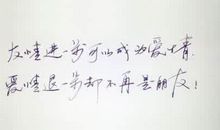 友情进一步可以成为爱情
爱情退一步却不再是朋友！